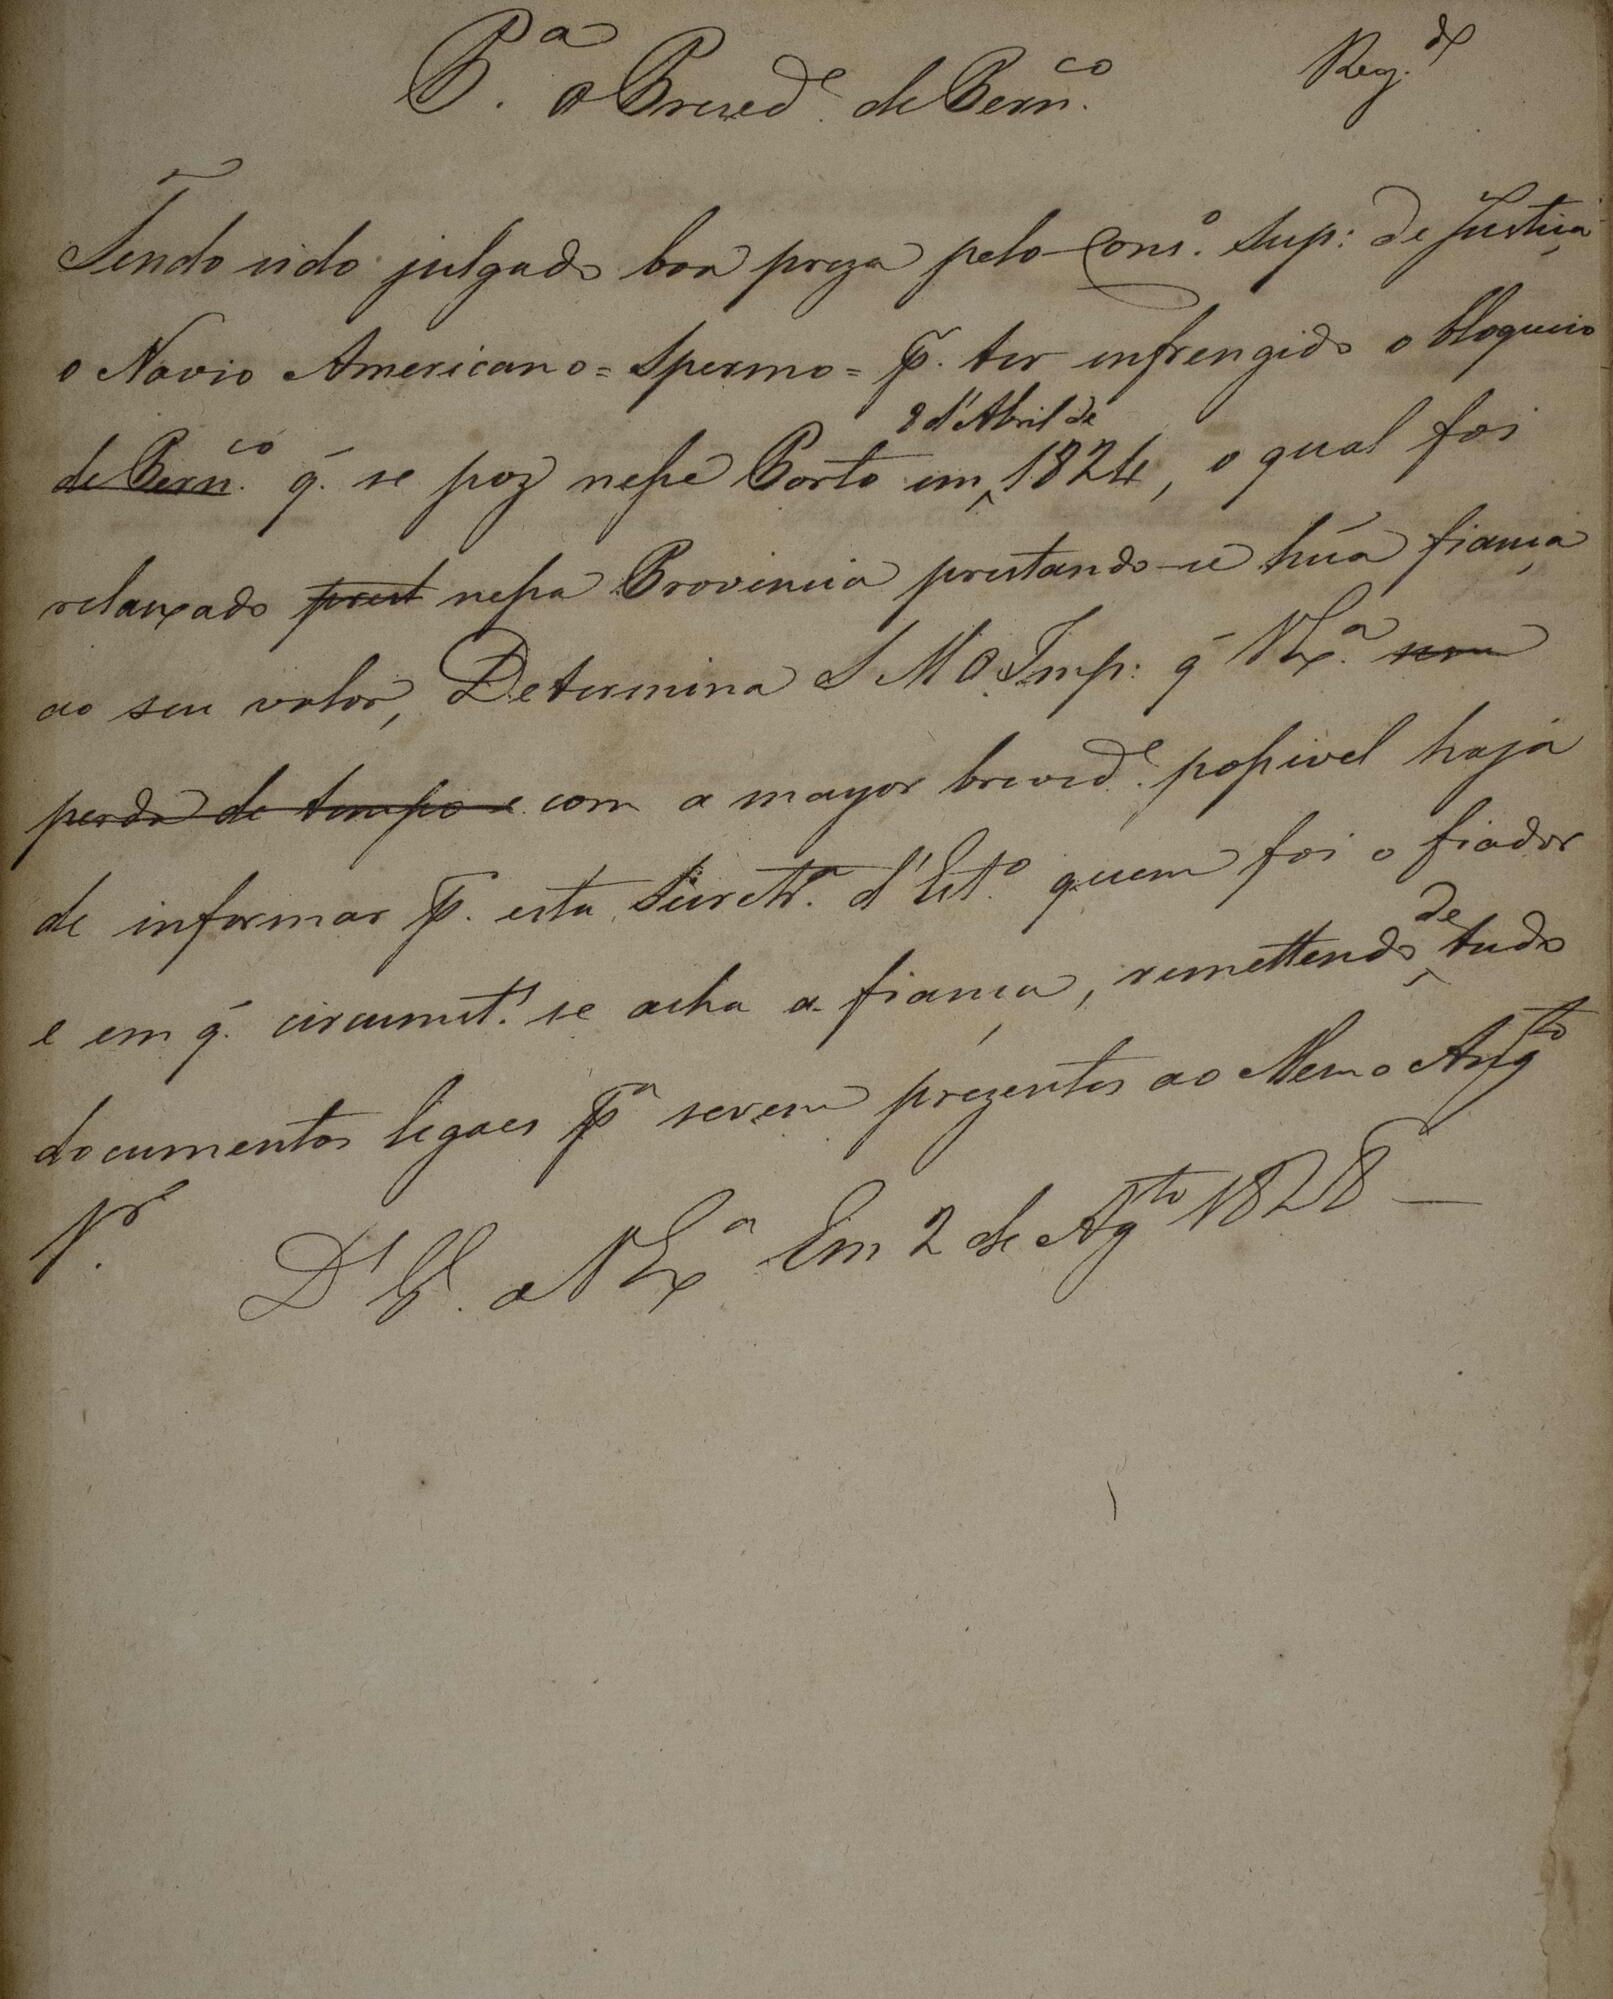 P.ª o Prezed.e de Pern.co
Reg.do
Tendo sido julgado boa preza pelo Cons.o Sup: de Justiça
o Navio Americano = Spermo = p. ter enfrengido o bloqueio
8 d'Abril de
de Pern.co q. se poz nesse Porto em 1824, o qual foi
relaxado prest nessa Provincia prestando-se hũa fiança
ao seu valor, Determina S M O Imp: q V Ex.ª sem
perda de tempo e com a mayor brevid.e possivel haja
de informar p. esta Secretr.ª d'Est.o quem foi o fiador
de
e em q. circumst.s se acha a fiança, remettendo tudo
documentos legaes p.ª serem prezentes ao Mesmo Aug.to
Sr.
D.s G.e a V Ex.ª Em 2 de Ag.to 1828 —